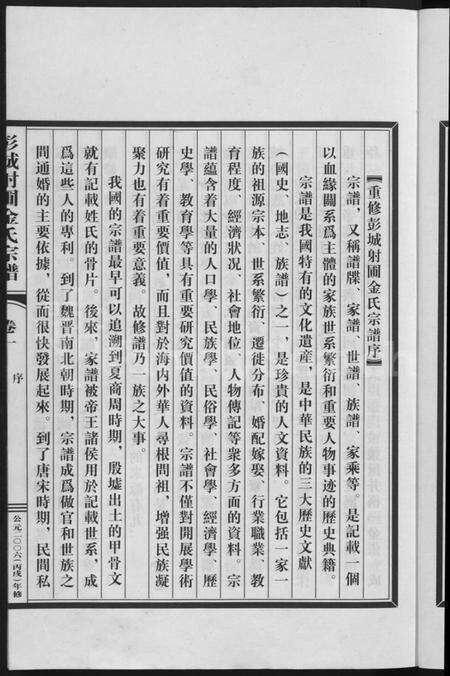 『重修彭城射圃金氏宗譜序』
宗譜，又稱譜牒、家譜、世譜、族譜、家乘等。是記載一個
以血緣關系爲主體的家族世系繁衍和重要人物事迹的歷史典籍。
宗譜是我國特有的文化遺産，是中華民族的三大歷史文獻
（國史、地志、族譜）之一，是珍貴的人文資料。它包括一家一
族的祖源宗本、世系繁衍、遷徙分布、婚配嫁娶、行業職業、教
育程度、經濟狀况、社會地位、人物傳記等衆多方面的資料。宗
譜蘊含着大量的人口學、民族學、民俗學、社會學、經濟學、歷
史學、教育學等具有重要研究價值的資料。宗譜不僅對開展學術
研究有着重要價值，而且對於海内外華人尋根問祖，增强民族凝
聚力也有着重要意義。故修譜乃一族之大事。
我國的宗譜最早可以追溯到夏商周時期，殷墟出土的甲骨文
就有記載姓氏的骨片。後來，家譜被帝王諸侯用於記載世系，成
爲這些人的專利。到了魏晋南北朝時期，宗譜成爲做官和世族之
間通婚的主要依據，從而很快發展起來。到了唐宋時期，民間私
彭城射圃金氏宗譜
卷一
序
公元二〇〇六（丙戌）年修